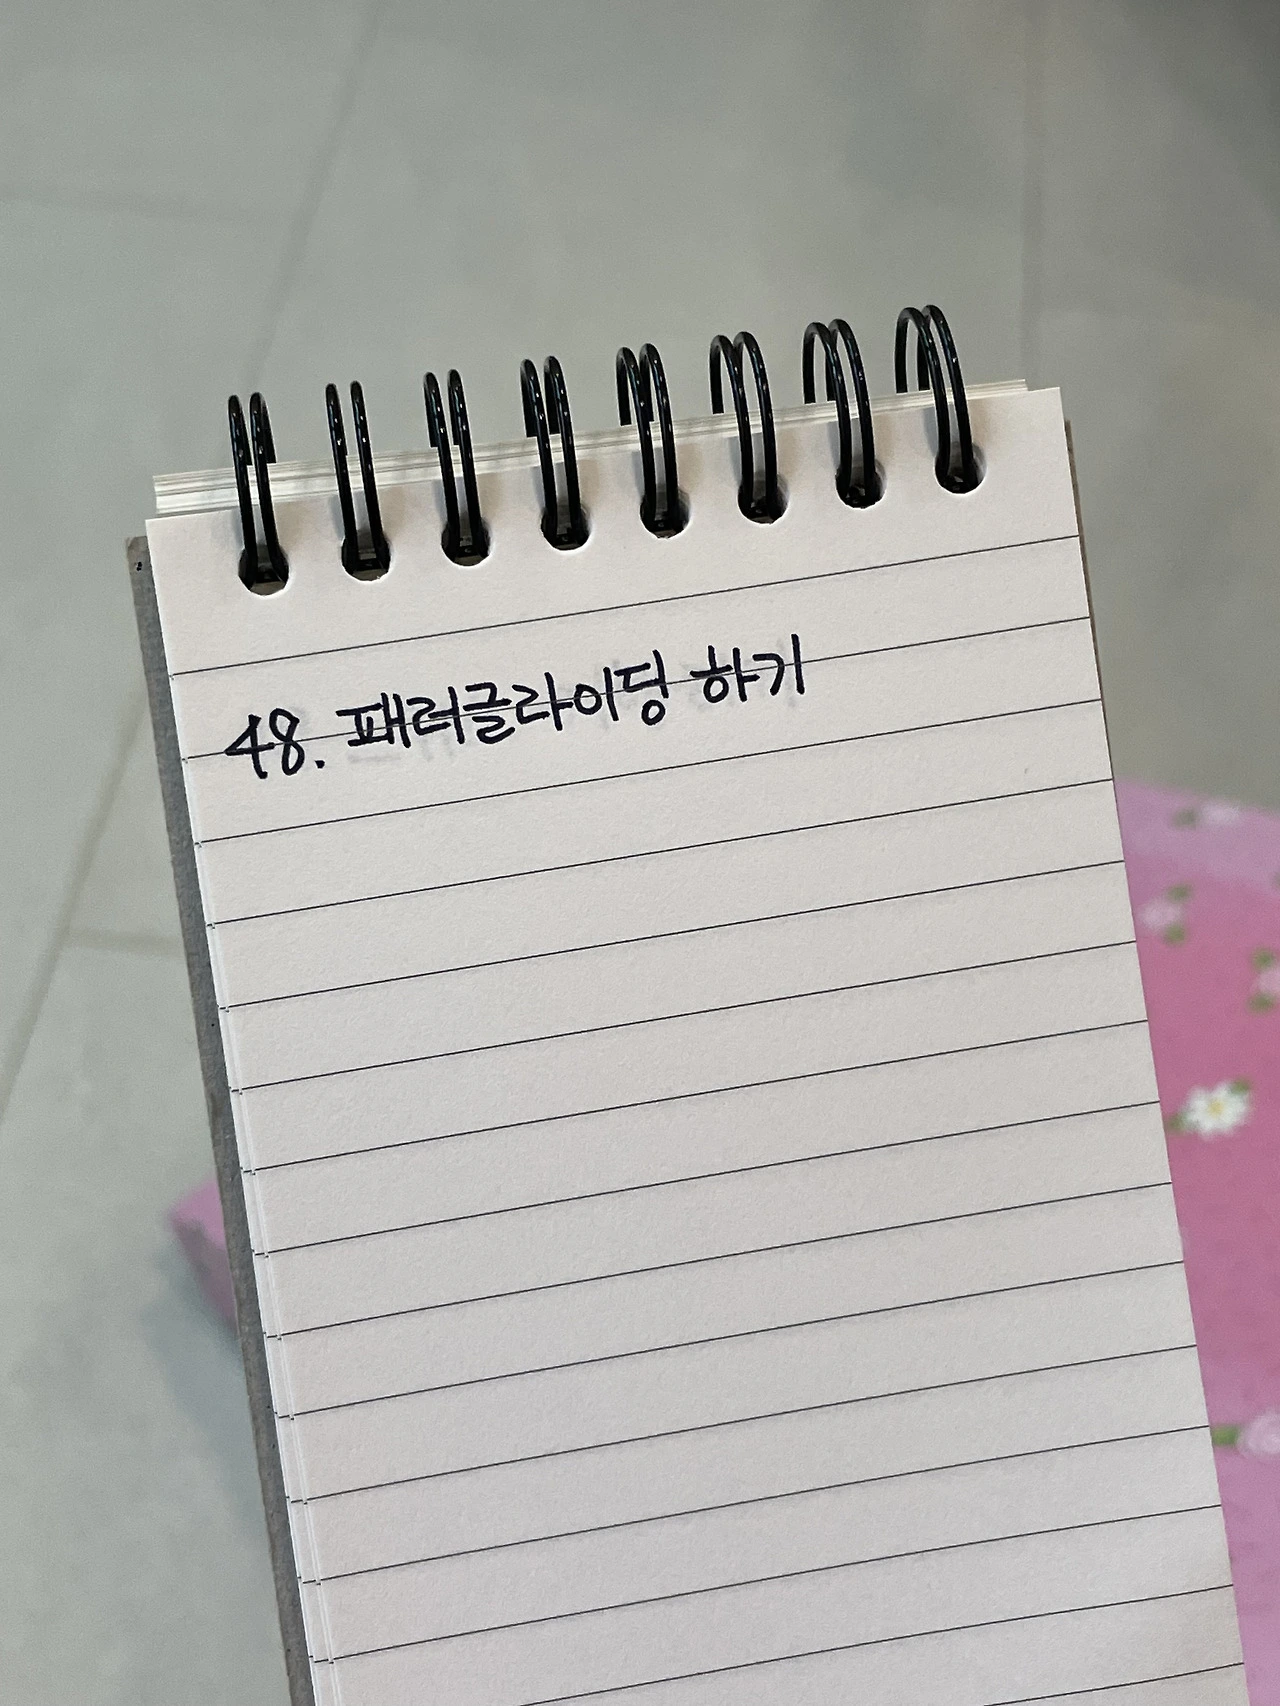 48. 패러글라이딩 하기